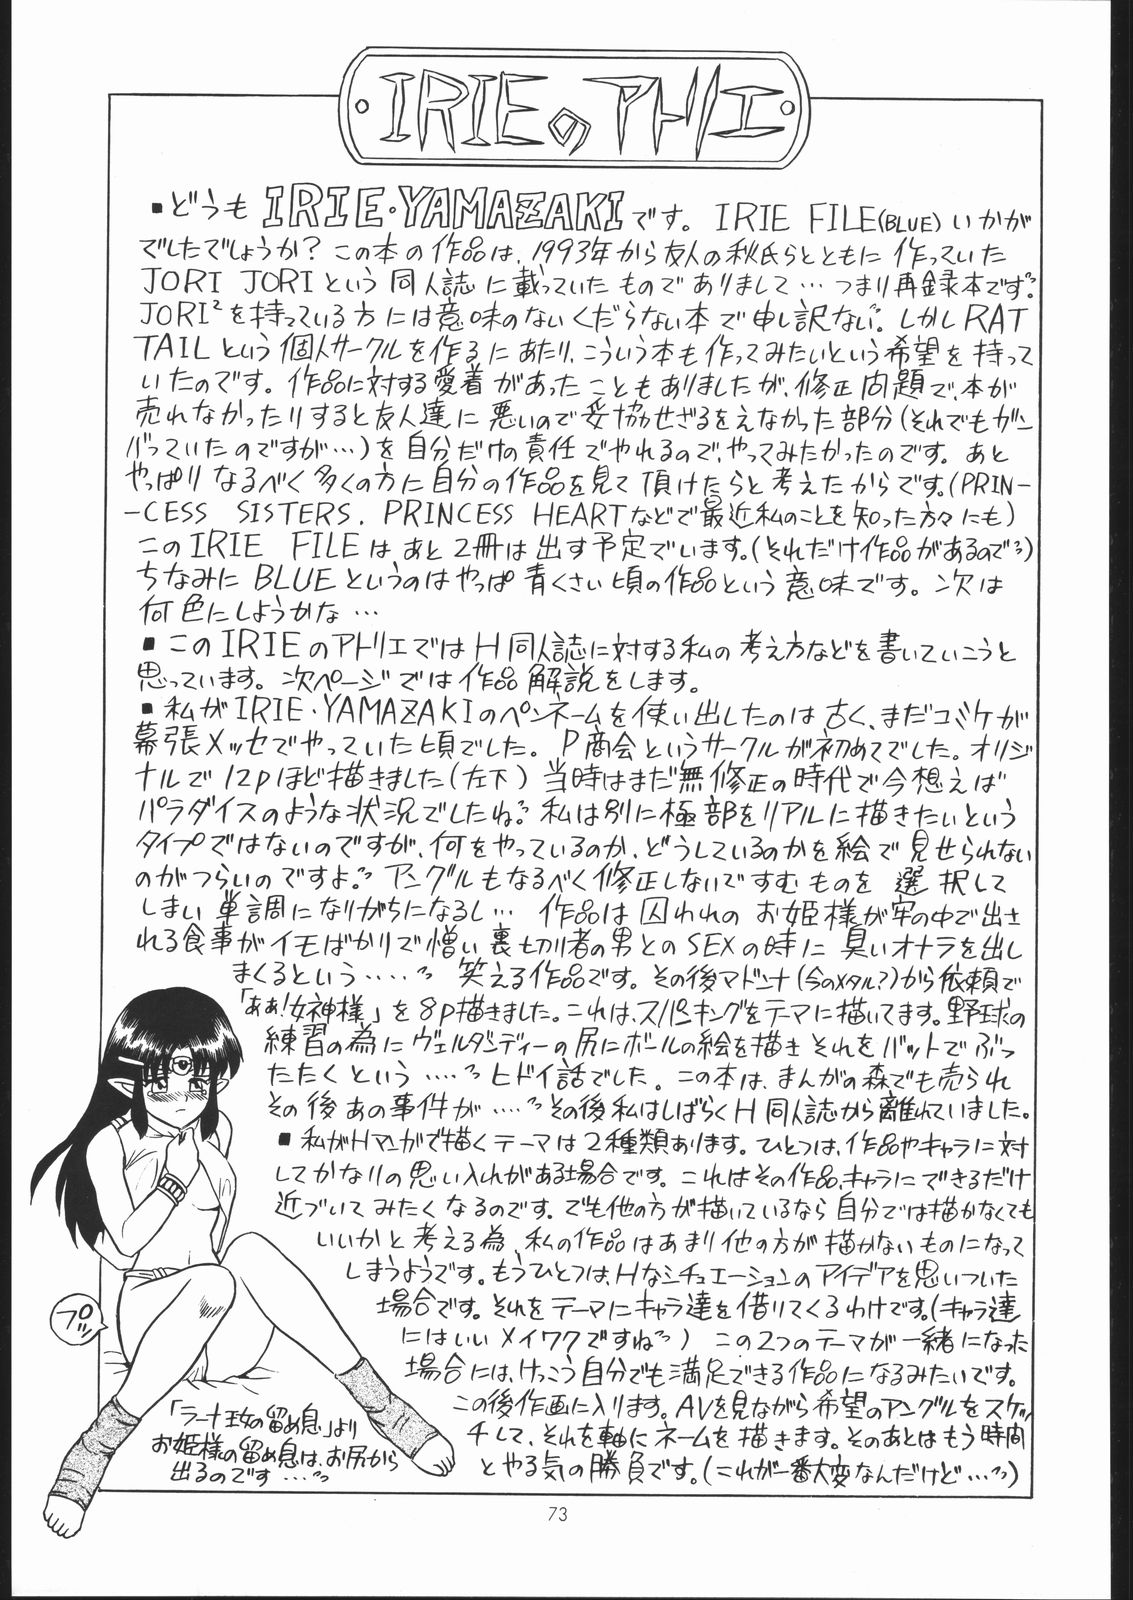 IRIEのアトリエ
▪どうもIRIE・YAMAZAKIです。IRIE FILE(BLUE)いかが
でしたでしょうか?この本の作品は、1993年から友人の秋氏らとともに作っていた
JORI JORIという同人誌に載っていたものでありまして…つまり再録本です。
JORI²を持っている方には意味のないくだらない本で申し訳ない。しかしRAT
TAILという個人サークルを作るにあたり、こういう本も作ってみたいという希望を持って
いたのです。作品に対する愛着があったこともありましたが、修正問題で、本が
売れなかったりすると友人達に悪いので妥協せざるをえなかった部分(それでもガン
バっていたのですが…)を自分だけの責任でやれるので、やってみたかったのです。あと
やっぱりなるべく多くの方に自分の作品を見て頂けたらと考えたからです。(PRIN-
-CESS SISTERS. PRINCESS HEARTなどで最近私のことを知った方々にも)
このIRIE FILEはあと2冊は出す予定でいます。(それだけ作品があるので)
ちなみにBLUEというのはやっぱ青くさい頃の作品という意味です。次は
何色にしようかな…
▪このIRIEのアトリエではH同人誌に対する私の考え方などを書いていこうと
思っています。次ページでは作品解説をします。
▪私がIRIE・YAMAZAKIのペンネームを使い出したのは古く、まだコミケが
幕張メッセでやっていた頃でした。P商会というサークルが初めてでした。オリジ
ナルで12Pほど描きました(左下)当時はまだ無修正の時代で今想えば
パラダイスのような状況でしたね。私は別に極部をリアルに描きたいという
タイプではないのですが、何をやっているのか、どうしているのかを絵で見せられない
のがつらいのですよ。アングルもなるべく修正しないですむものを選択して
しまい単調になりがちになるし…作品は囚われのお姫様が牢の中で出さ
れる食事がイモばかりで憎い裏切り者の男とのSEXの時に臭いオナラを出し
まくるという……笑える作品です。その後マドンナ(今のメタル?)から依頼で
「ああ!女神様」を8P描きました。これは、スパンキングをテーマに描いてます。野球の
練習の為にヴェルダンディーの尻にボールの絵を描きそれをバットでぶっ
たたくという……ヒドイ話でした。この本は、まんがの森でも売られ
その後あの事件が……その後私はしばらくH同人誌から離れていました。
▪私がHマンガで描くテーマは2種類あります。ひとつは、作品やキャラに対
してかなりの思い入れがある場合です。これはその作品、キャラにできるだけ
近づいてみたくなるのです。でも他の方が描いているなら自分では描かなくても
いいかと考える為、私の作品はあまり他の方が描かないものになって
しまうようです。もうひとつは、Hなシチュエーションのアイデアを思いついた
場合です。それをテーマにキャラ達を借りてくるわけです。(キャラ達
にはいいメイワクですね)この2つのテーマが一緒になった
場合には、けっこう自分でも満足できる作品になるみたいです。
この後作画に入ります。AVを見ながら希望のアングルをスケッ
チして、それを軸にネームを描きます。そのあとはもう時間
とやる気の勝負です。(これが一番大変なんだけど…)
プゥッ
「ラーナ王女の留め息」より
お姫様の留め息は、お尻から
出るのです…
73